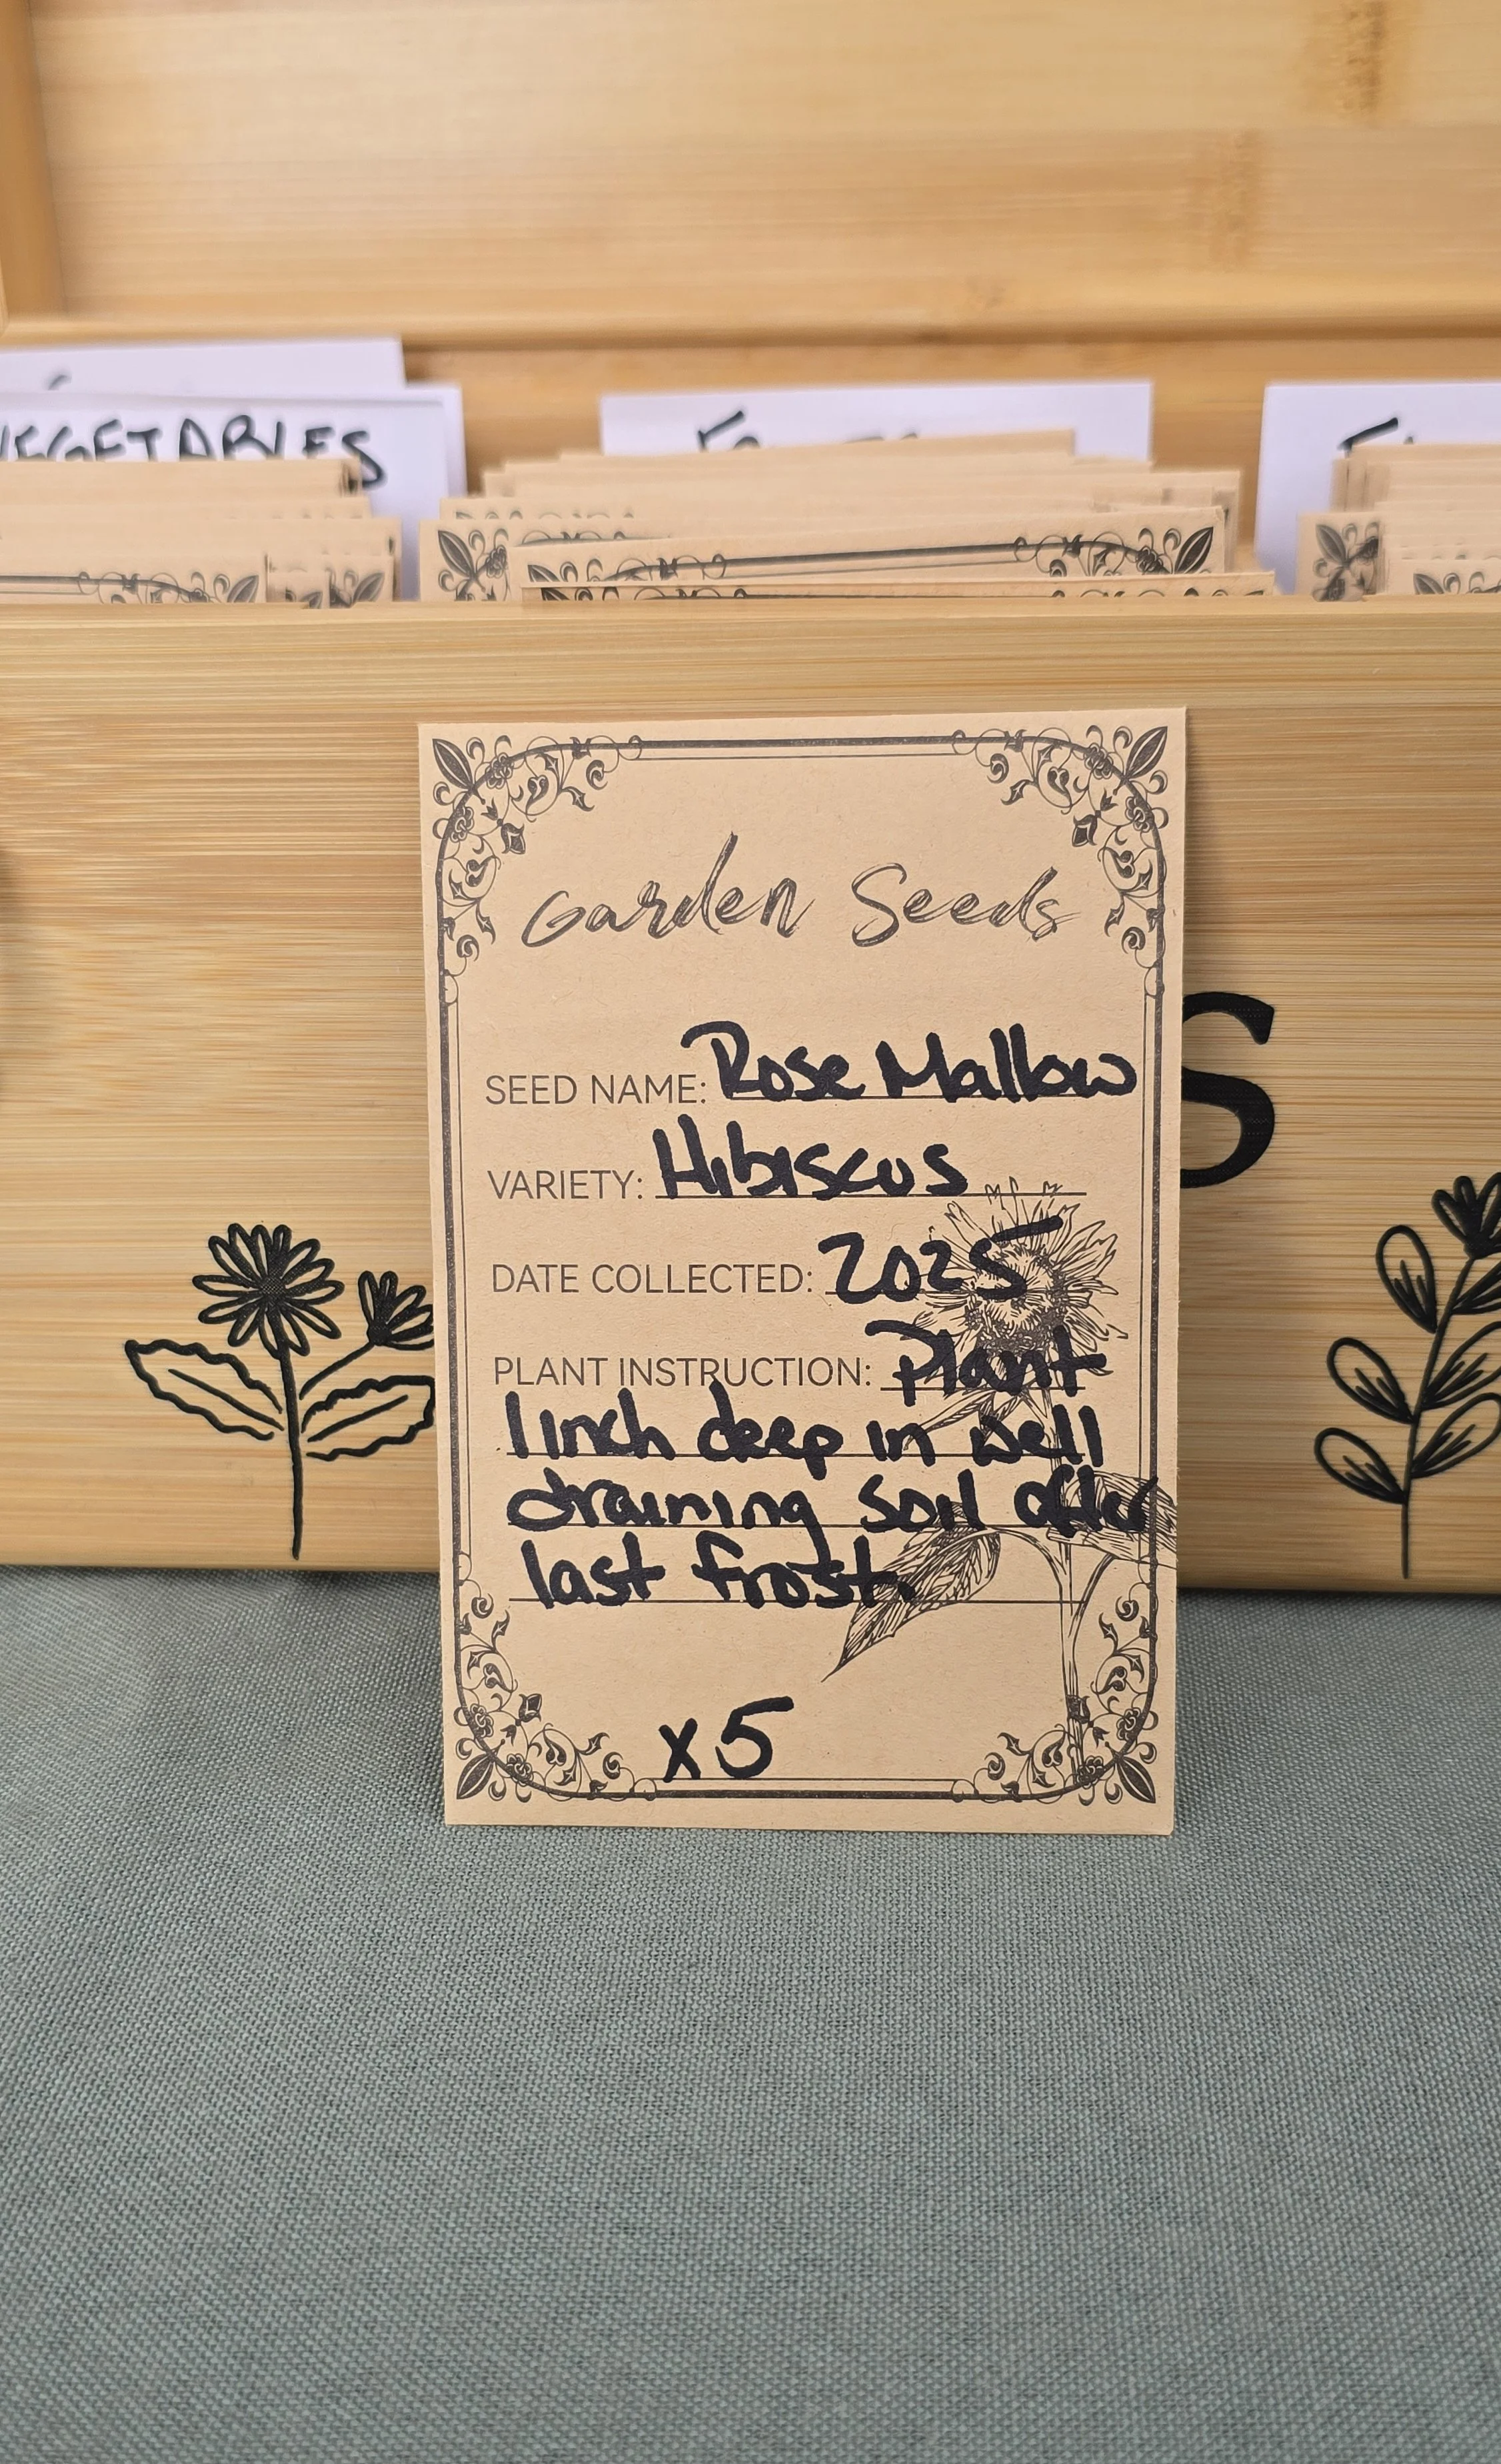 VEGETABLES
Garden Seeds
SEED NAME: Rose Mallow
VARIETY: Hibiscus
DATE COLLECTED: 2025
PLANT INSTRUCTION: Plant
1 inch deep in well
draining soil after
last frost.
x5
S